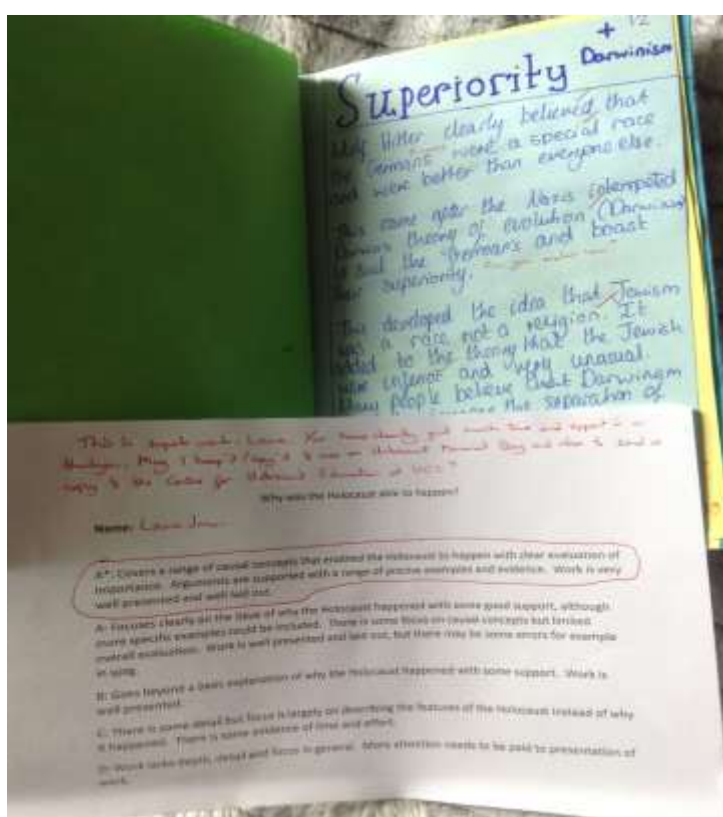 + 12
Superiority Darwinism
Adolf Hitler clearly believed that
the Germans were a special race
and were better than everyone else.
This came after the Nazis interempted
Darwin's theory of evolution (Darwinism)
to suit the German's and boast
their superiority.
This developed the idea that Jewism
was a race not a religion. It
added to the theory that the Jewish
were inferior and very unusual.
Many people believe that Darwinism
the separation of
This is superb work Laura. You have clearly put much time and effort in to
this. May I keep / copy it to use on Holocaust Memorial Day and also to send a
copy to the Centre for Holocaust Education at UCL?
Why was the Holocaust able to happen?
Name: Laura
A*: Covers a range of causal concepts that enabled the Holocaust to happen with clear evaluation of
importance. Arguments are supported with a range of precise examples and evidence. Work is very
well presented and well laid out.
A: Focuses clearly on the issue of why the Holocaust happened with some good support, although
more specific examples could be included. There is some focus on causal concepts but limited
overall evaluation. Work is well presented and laid out, but there may be some errors for example
in spag.
B: Goes beyond a basic explanation of why the Holocaust happened with some support. Work is
well presented.
C: There is some detail but focus is largely on describing the features of the Holocaust instead of why
it happened. There is some evidence of time and effort.
D: Work lacks depth, detail and focus in general. More attention needs to be paid to presentation of
work.